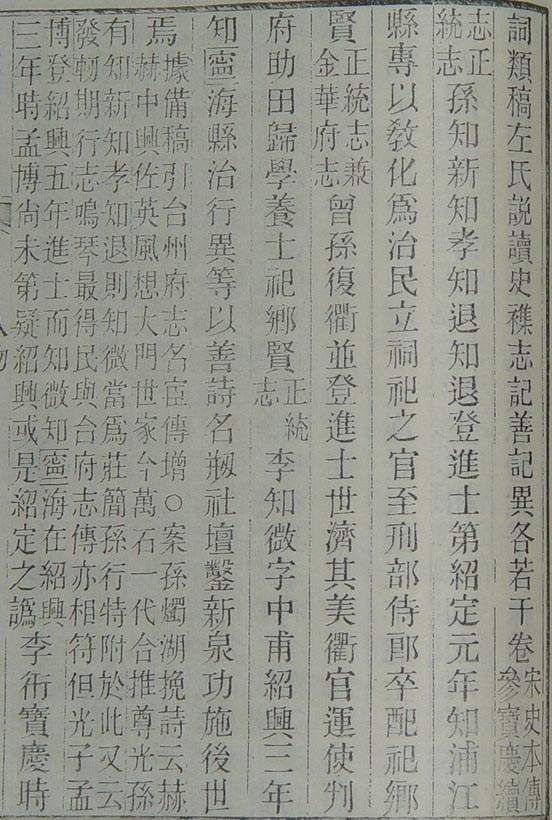 詞類稿左氏說讀史襍志記善記異各若干卷宋史本傳參寶慶續
志正統志孫知新知孝知退知退登進士第紹定元年知浦江
縣專以敎化爲治民立祠祀之官至刑部侍郞卒配祀鄉
賢正統志兼金華府志曾孫復衢並登進士世濟其美衢官運使判
府助田歸學養士祀鄉賢正統志李知微字中甫紹興三年
知寧海縣治行異等以善詩名剏社壇鑿新泉功施後世
焉據備稿引台州府志名宦傳增○案孫燭湖挽詩云赫
赫中興佐英風想大門世家今萬石一代合推尊光孫
有知新知孝知退則知微當爲莊簡孫行特附於此又云
發軔期行志鳴琴最得民與台府志傳亦相符但光子孟
博登紹興五年進士而知微知寧海在紹興
三年時孟博尚未第疑紹興或是紹定之譌李衎寶慶時